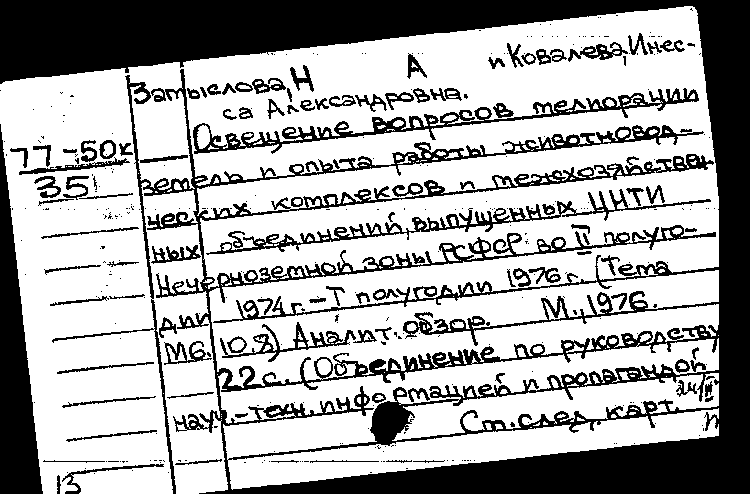 Затыслова, Н А и Ковалева, Инес-
са Александровна.
77-50к
35
Освещение вопросов мелиорации
земель и опыта работы животновод-
ческих комплексов и межхозяйствен-
ных объединений, выпущенных ЦНТИ
Нечерноземной зоны РСФСР во II полуго-
дии 1974 г. - I полугодии 1976 г. (Тема
М6. 10.8) Аналит. обзор. М., 1976.
22 с. (Объединение по руководству
науч.-техн. информацией и пропагандой
Ст. след. карт.
13